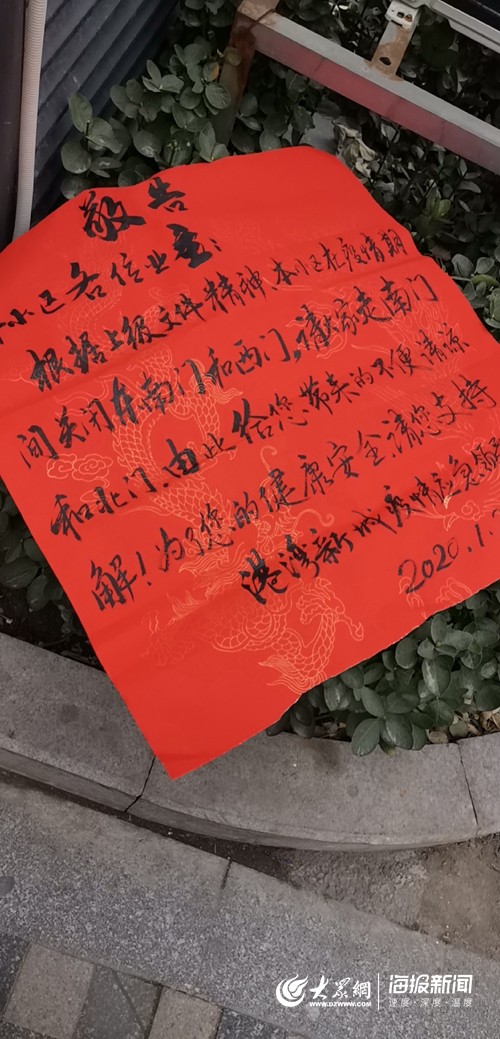 敬告
小区各位业主:
根据上级文件精神,本小区在疫情期
间关闭东南门和西门,请大家走南门
和北门.由此给您带来的不便请谅
解!为了您的健康安全请您支持
港湾新城疫情应急领
2020.1.
大众網
WWW.DZWWW.COM
海报新闻
速度·深度·温度